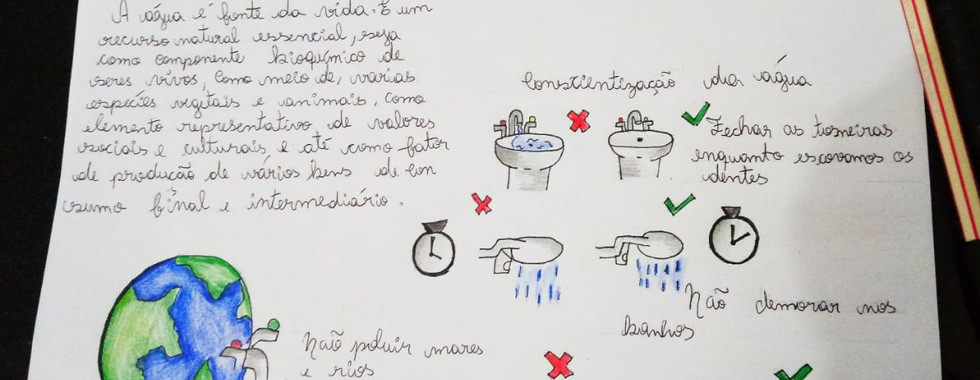 A água é fonte da vida. É um
recurso natural essencial, seja
como componente bioquímico de
seres vivos, como meio de, várias
espécies vegetais e animais, como
elemento representativo de valores
sociais e culturais e até como fator
de produção de vários bens de con
sumo final e intermediário.
Conscientização da água
Fechar as torneiras
enquanto escovamos os
dentes
Não demorar nos
banhos
Não poluir mares
e rios